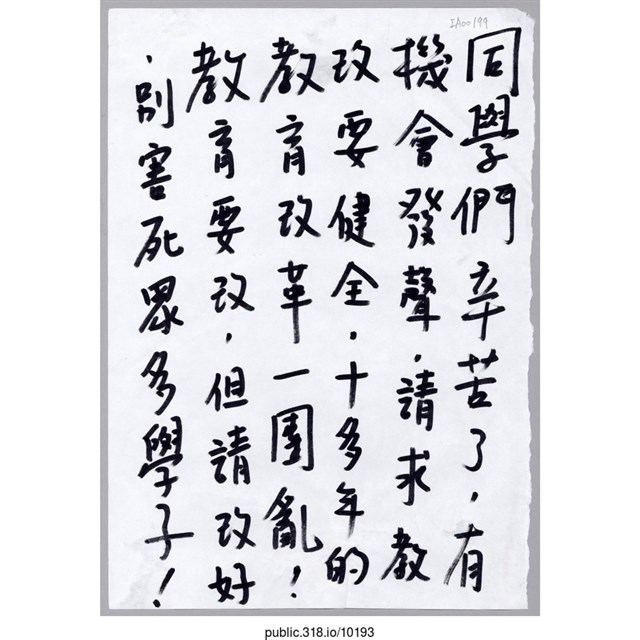 IA00199
同學們辛苦了，有
機會發聲，請求教
改要健全，十多年的
教育改革一團亂！
教育要改，但請改好
，別害死眾多學子！
public.318.io/10193